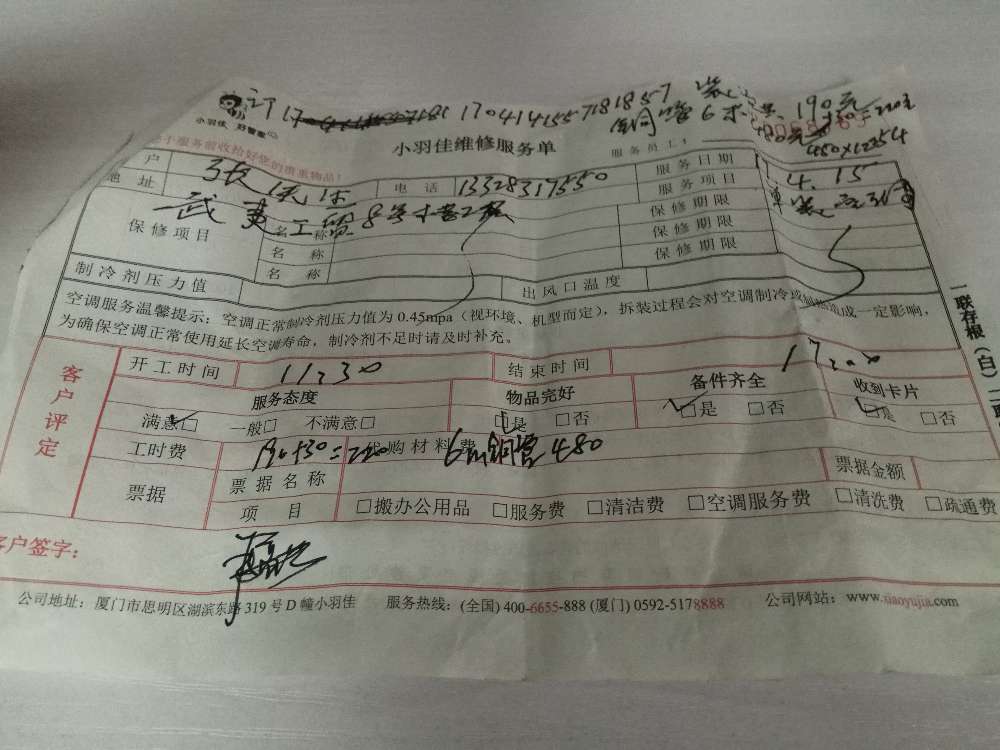 小羽佳 好管家
170414155718 1857
铜管6米
190元
小羽佳维修服务单
服务员工:
服务前收拾好您的贵重物品!
户 张 电话 13328317550 服务日期 4.15
地址 武夷工贸8号 服务项目
保修项目 名称 保修期限
名称 保修期限
名称 保修期限
制冷剂压力值 出风口温度
空调服务温馨提示:空调正常制冷剂压力值为 0.45mpa(视环境、机型而定),拆装过程会对空调制冷 造成一定影响,
为确保空调正常使用延长空调寿命,制冷剂不足时请及时补充。
一联存根(白)
客户评定
开工时间 11:30 结束时间 17:00
服务态度 物品完好 备件齐全 收到卡片
满意□ 一般□ 不满意□ □是 □否 □是 □否 □是 □否
工时费 190+30=220 代购材料费 6m铜管480
票据 票据名称 票据金额
项目 □搬办公用品 □服务费 □清洁费 □空调服务费 □清洗费 □疏通费
客户签字:
公司地址:厦门市思明区湖滨东路 319 号 D 幢小羽佳 服务热线:(全国) 400-6655-888 (厦门) 0592-5178888 公司网站:www.xiaoyujia.com